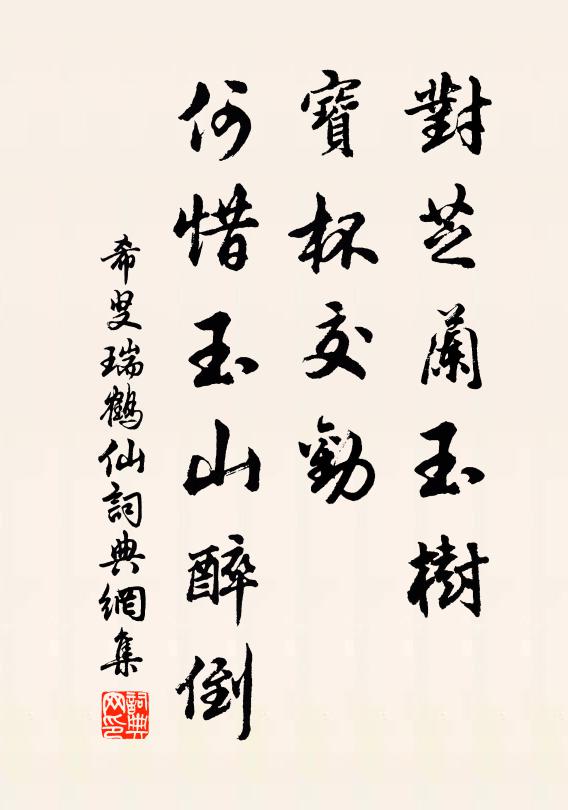 對芝蘭玉樹
寶杯交勸
何惜玉山醉倒
希叟瑞鶴仙詞典網集
詞典网印